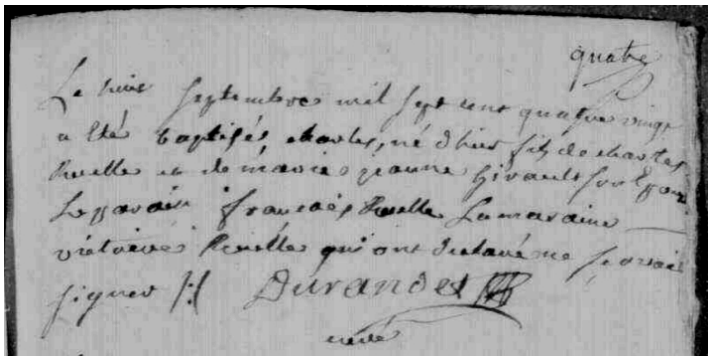 quatre
Le huit septembre mil sept cent quatre vingt
a été baptisé charles, né d'hier fils de charles
Ruelle et de marie jeanne Girault son Epouse
Le parain françois Ruelle La maraine
victoire Ruelle qui ont declaré ne sçavoir
signer
Durandet
curé